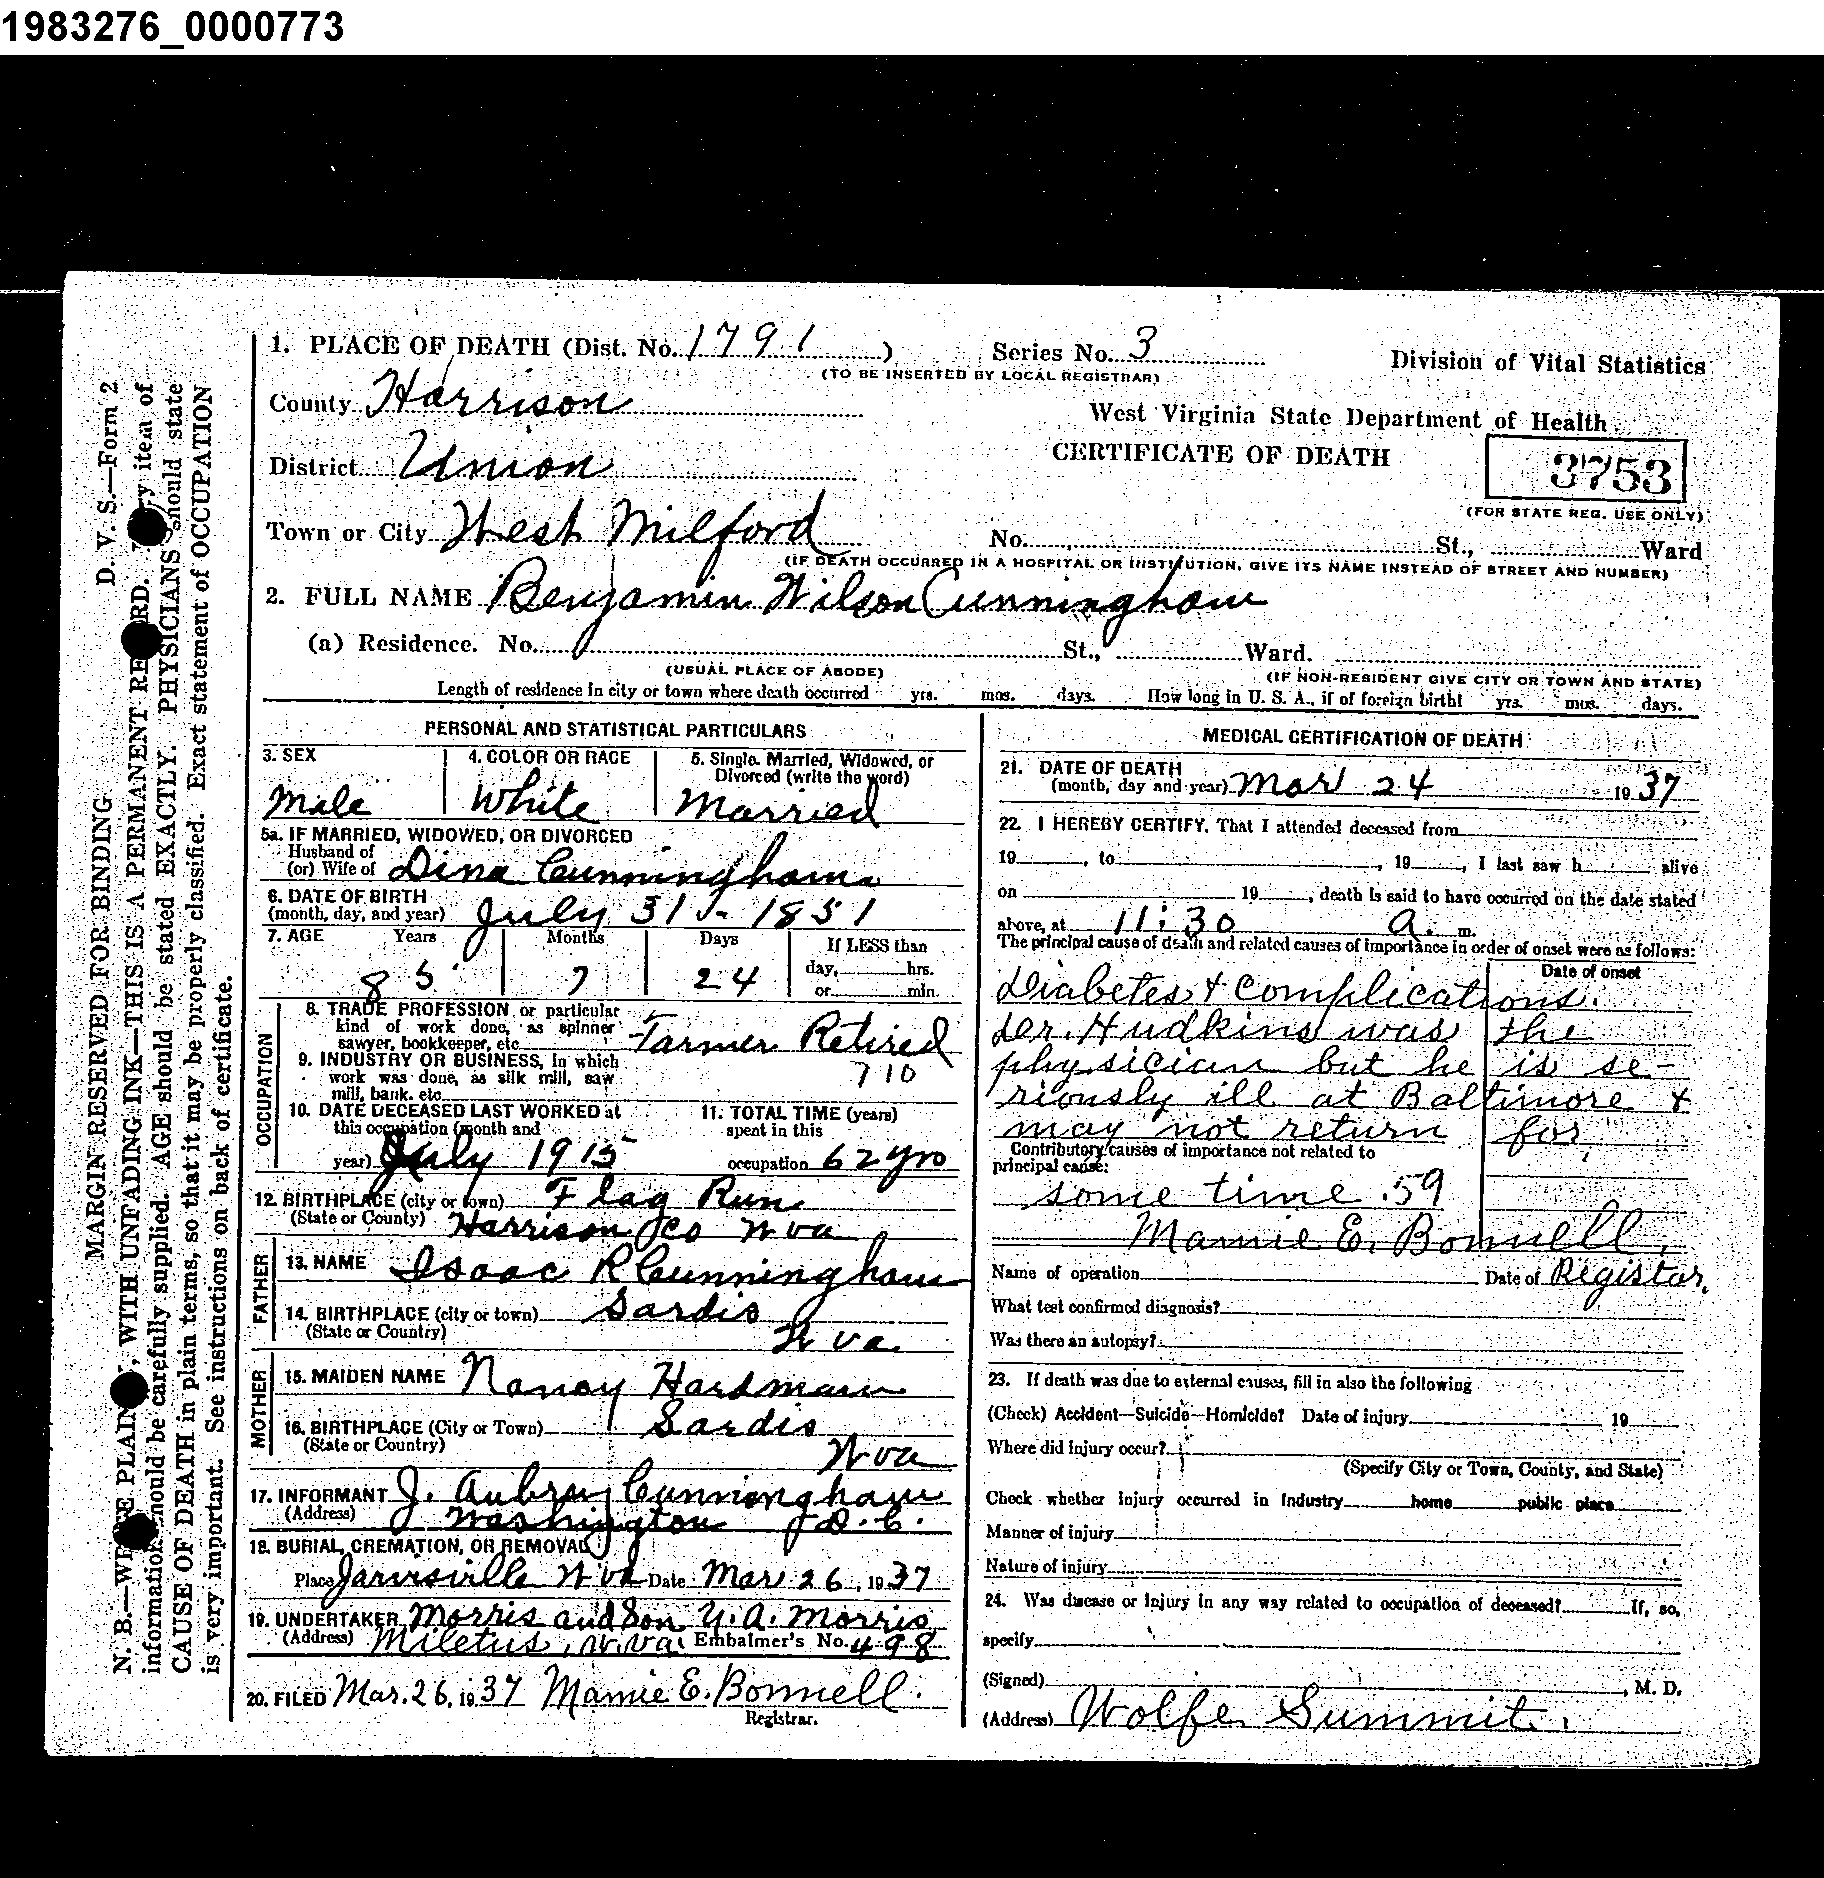 1983276_0000773
D. V. S.—Form 2
MARGIN RESERVED FOR BINDING
N. B.—WRITE PLAINLY, WITH UNFADING INK—THIS IS A PERMANENT RECORD. Every item of
information should be carefully supplied. AGE should be stated EXACTLY. PHYSICIANS should state
CAUSE OF DEATH in plain terms, so that it may be properly classified. Exact statement of OCCUPATION
is very important. See instructions on back of certificate.
1. PLACE OF DEATH (Dist. No. 1791) Series No. 3 Division of Vital Statistics
(TO BE INSERTED BY LOCAL REGISTRAR)
County Harrison West Virginia State Department of Health
District Union CERTIFICATE OF DEATH 3753
(FOR STATE REG. USE ONLY)
Town or City West Milford No. St., Ward
(IF DEATH OCCURRED IN A HOSPITAL OR INSTITUTION, GIVE ITS NAME INSTEAD OF STREET AND NUMBER)
2. FULL NAME Benjamin Wilson Cunningham
(a) Residence. No. St., Ward.
(USUAL PLACE OF ABODE) (IF NON-RESIDENT GIVE CITY OR TOWN AND STATE)
Length of residence in city or town where death occurred yrs. mos. days. How long in U. S. A., if of foreign birth? yrs. mos. days.
PERSONAL AND STATISTICAL PARTICULARS
3. SEX 4. COLOR OR RACE 5. Single, Married, Widowed, or
Divorced (write the word)
Male White Married
5a. IF MARRIED, WIDOWED, OR DIVORCED
Husband of
(or) Wife of Dina Cunningham
6. DATE OF BIRTH
(month, day, and year) July 31 - 1851
7. AGE Years Months Days If LESS than
85 7 24 day, hrs.
or min.
OCCUPATION
8. TRADE PROFESSION or particular
kind of work done, as spinner
sawyer, bookkeeper, etc. Farmer Retired
9. INDUSTRY OR BUSINESS, in which
work was done, as silk mill, saw 710
mill, bank, etc.
10. DATE DECEASED LAST WORKED at 11. TOTAL TIME (years)
this occupation (month and spent in this
year) July 1915 occupation 62 yrs
12. BIRTHPLACE (city or town) Flag Run
(State or County) Harrison Co W va
FATHER
13. NAME Isaac R Cunningham
14. BIRTHPLACE (city or town) Sardis
(State or Country) W va.
MOTHER
15. MAIDEN NAME Nancy Hardman
16. BIRTHPLACE (City or Town) Sardis
(State or Country) W va
17. INFORMANT J. Aubrey Cunningham
(Address) Washington D. C.
18. BURIAL, CREMATION, OR REMOVAL
Place Jarvisville W va Date Mar 26, 1937
19. UNDERTAKER Morris and Son Y. A. Morris
(Address) Miletus, W. Va. Embalmer's No. 498
20. FILED Mar. 26, 1937 Mamie E. Bonnell.
Registrar.
MEDICAL CERTIFICATION OF DEATH
21. DATE OF DEATH
(month, day and year) Mar 24 1937
22. I HEREBY CERTIFY, That I attended deceased from
19 , to , 19 , I last saw h alive
on 19 , death is said to have occurred on the date stated
above, at 11:30 a. m.
The principal cause of death and related causes of importance in order of onset were as follows:
Date of onset
Diabetes & Complications.
Dr. Hudkins was the
physician but he is se-
riously ill at Baltimore &
may not return for
Contributory causes of importance not related to
principal cause:
some time. 59
Mamie E. Bonnell,
Name of operation Date of Registar.
What test confirmed diagnosis?
Was there an autopsy?
23. If death was due to external causes, fill in also the following
(Check) Accident—Suicide—Homicide? Date of injury 19
Where did injury occur?
(Specify City or Town, County, and State)
Check whether injury occurred in industry home public place
Manner of injury
Nature of injury
24. Was disease or injury in any way related to occupation of deceased? If, so,
specify
(Signed) , M. D.
(Address) Wolfe Summit.